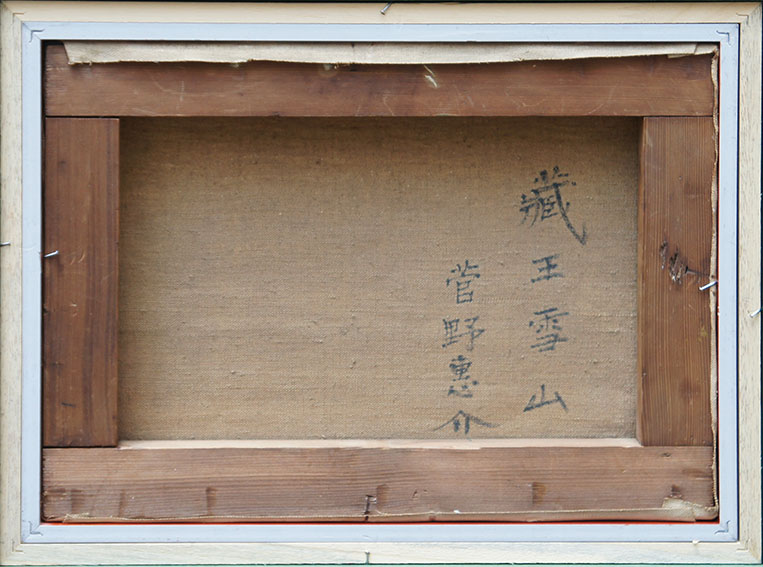 藏王雪山
菅野惠介